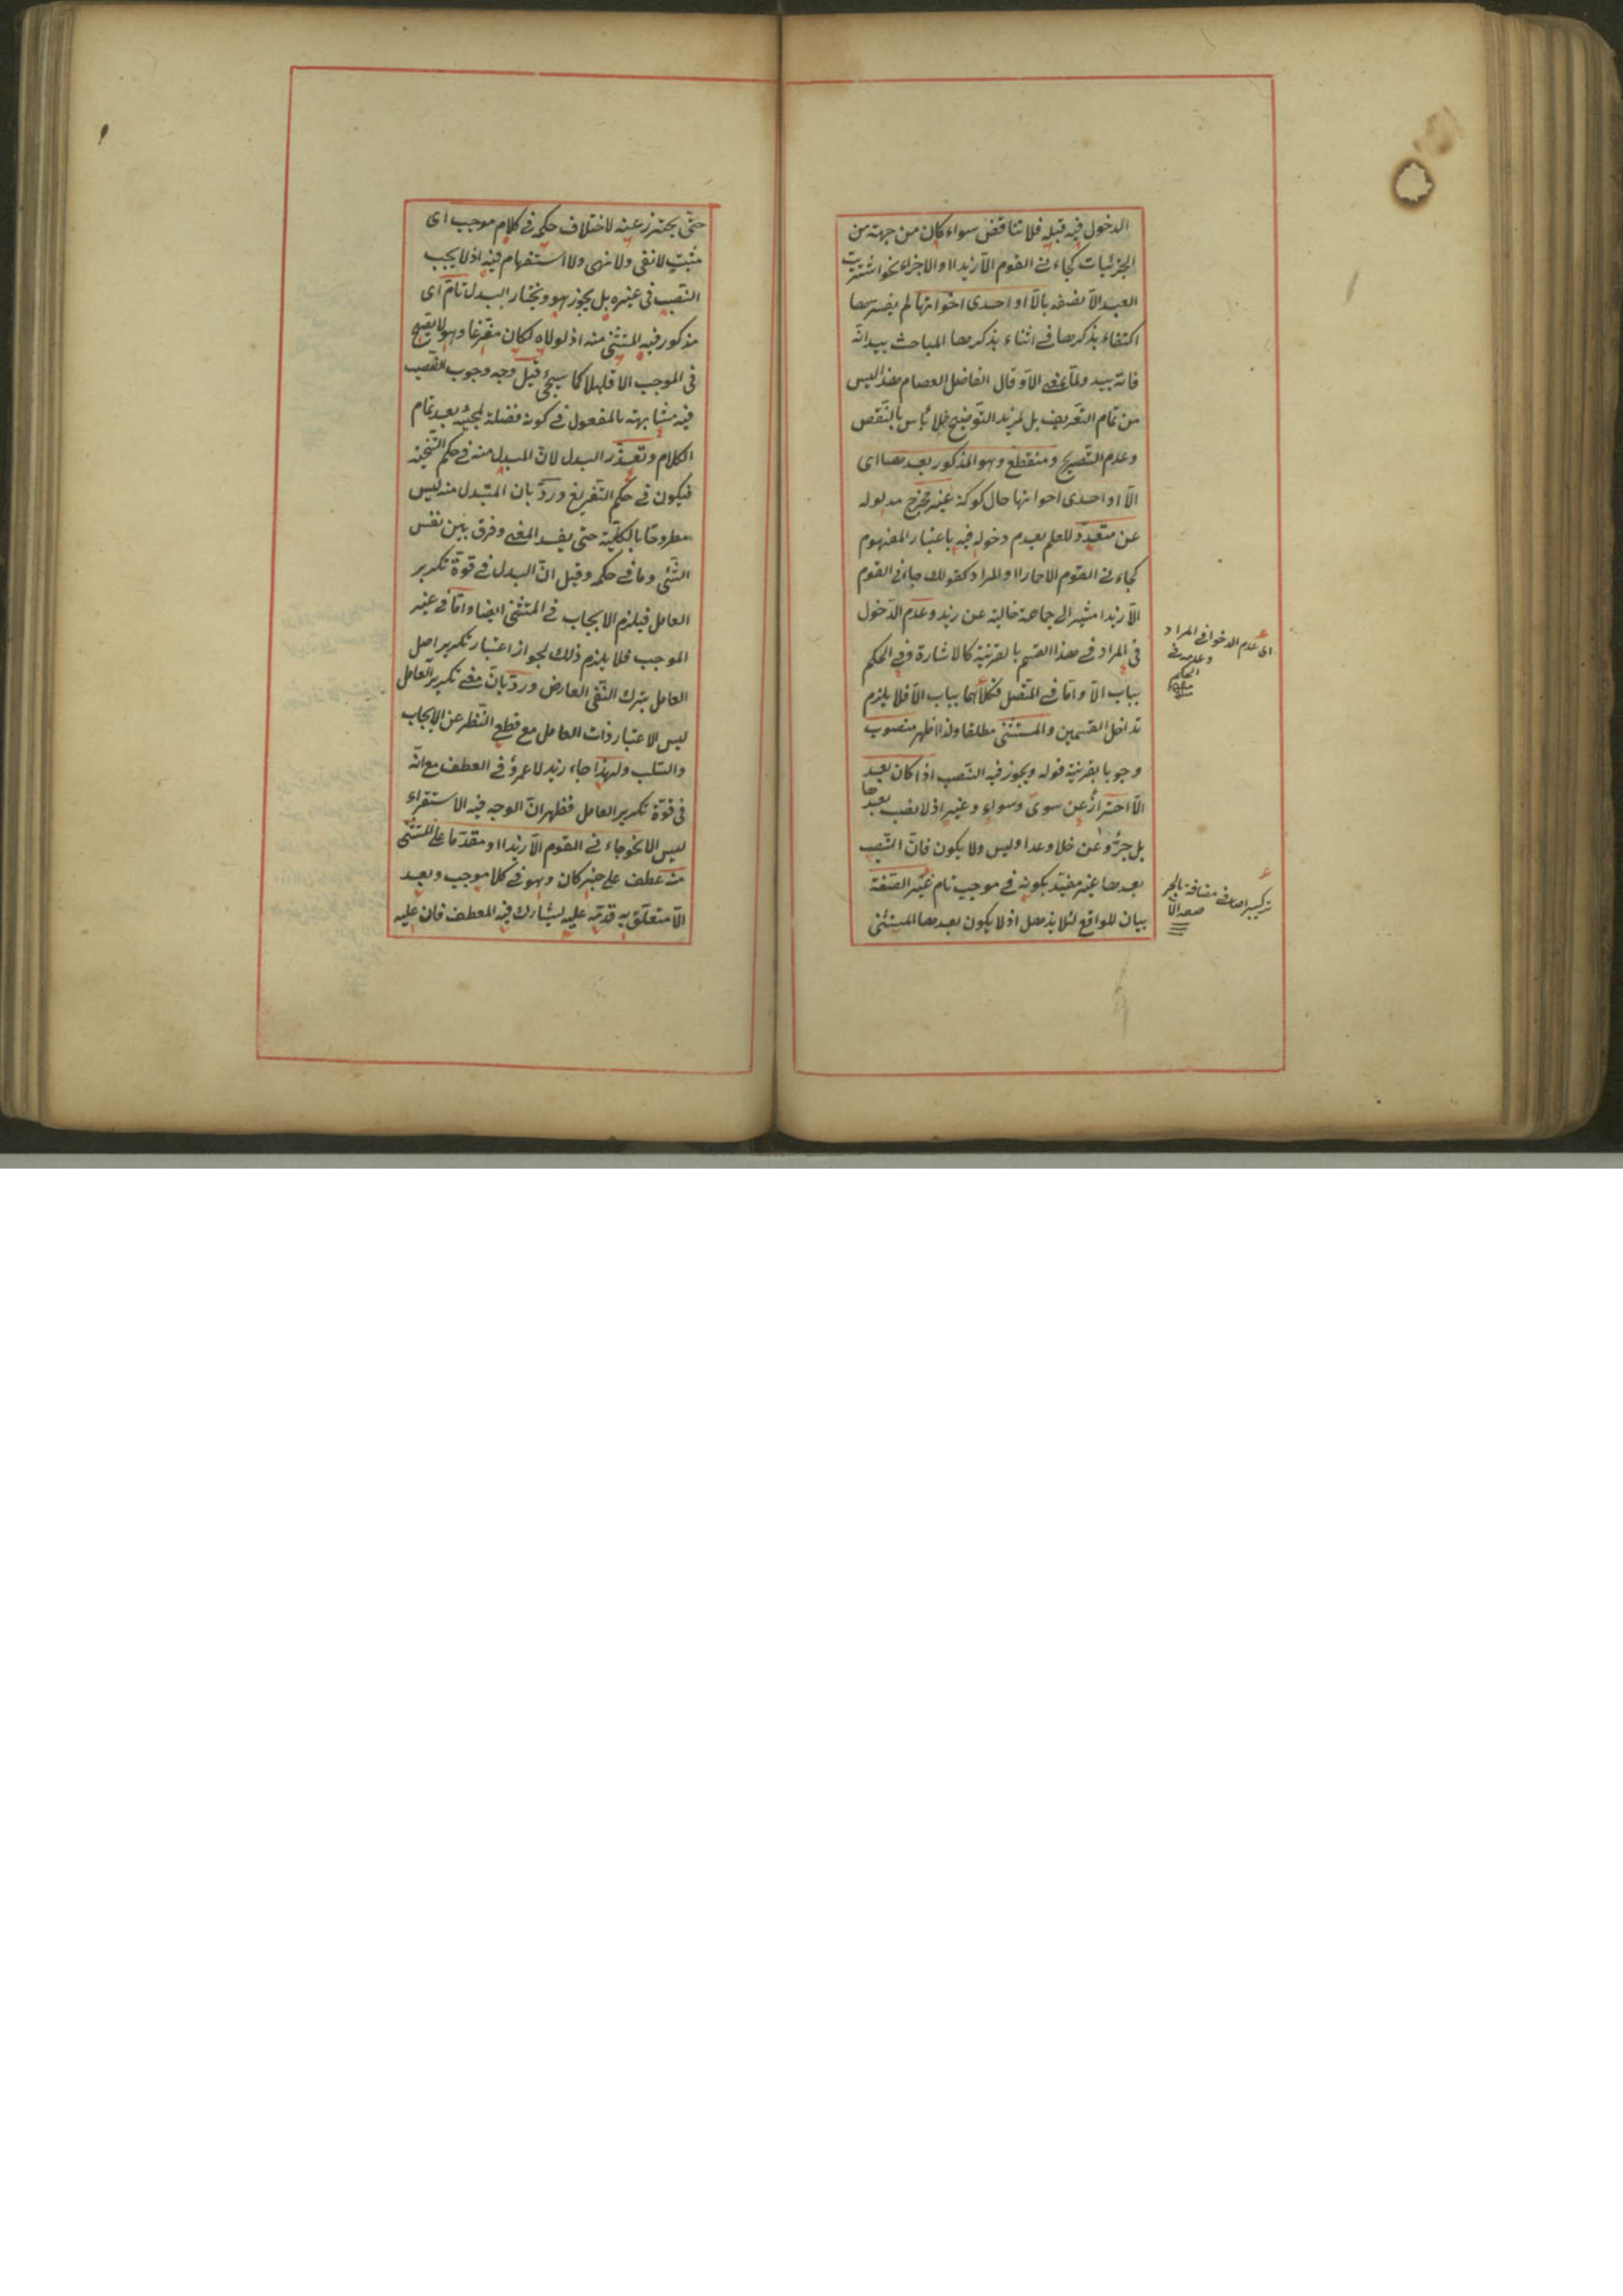 الدخول فيه قبله فلا تناقض سواء كان من جهة من
الجزئيات كجاءنى القوم الّا زيدا او الاجزاء نحو اشتريت
العبد الّا نصفه بالّا او احدى اخواتها لم يفسرها
اكتفاء بذكرها فى اثناء بذكرها المباحث بيد انّه
فاته بيد ولمّا بمعنى الّا وقال الفاضل العصام هذا ليس
من تمام التعريف بل لمزيد التوضيح فلا بأس بالنقص
وعدم التصريح ومنقطع وهو المذكور بعدها اى
الّا او احدى اخواتها حال كونه غير مخرج مدلوله
عن متعدّد للعلم بعدم دخوله فيه باعتبار المفهوم
كجاءنى القوم الا حمارا او المراد كقولك جاءنى القوم
الّا زيدا مشيرا الى جماعة خالية عن زيد وعدم الدّخول
فى المراد فى هذا القسم بالقرينة كالاشارة وفى الحكم
بباب الّا وامّا فى المتّصل فكلاهما بباب الّا فلا يلزم
تداخل القسمين والمستثنى مطلقا ولذا اظهر منصوب
وجوبا بقرينة قوله ويجوز فيه النّصب اذا كان بعد
الّا احتراز عن سوى وسواء وغير اذ لا نصب بعدها
بل جرّ وعن خلا وعدا وليس ولا يكون فانّ النّصب
بعدها غير مقيّد بكونه فى موجب تام غير الصّفة
بيان للواقع لئلا يذهل اذ لا يكون بعدها المستثنى
اى عدم الدخول فى المراد
وعدمه فى
الحكم
منه
تركيب اضافى مضافة بالجر
صفة الّا
حتّى يحترز عنه لاختلاف حكمه فى كلام موجب اى
مثبت لا نفى ولا نهى ولا استفهام فيه اذ لا يجب
النّصب فى غيره بل يجوز هو ويختار البدل تامّ اى
مذكور فيه المستثنى منه اذ لولاه لكان مفرّغا وهو لا يقع
فى الموجب الا قليلا كما سيجئ قيل وجه وجوب النّصب
فيه مشابهته بالمفعول فى كونه فضلة لمجيئه بعد تمام
الكلام وتعذّر البدل لانّ المبدل منه فى حكم التّنحية
فيكون فى حكم التّفريغ وردّ بان المبدل منه ليس
مطروحا بالكلّية حتى يفسد المعنى وفرق بين نفس
الشّئ وما فى حكمه وقيل انّ البدل فى قوّة تكرير
العامل فيلزم الايجاب فى المستثنى ايضا وامّا فى غير
الموجب فلا يلزم ذلك لجواز اعتبار تكرير اصل
العامل بترك النّفى العارض وردّ بانّ معنى تكرير العامل
ليس الا اعتبار ذات العامل مع قطع النّظر عن الايجاب
والسّلب ولهذا جاء زيد لا عمرو فى العطف مع انّه
فى قوّة تكرير العامل فظهر انّ الوجه فيه الاستقراء
ليس الا نحو جاءنى القوم الّا زيدا او مقدّما على المستثنى
منه عطف على خبر كان وهو فى كلام موجب وبعد
الّا متعلّق به قدّمه عليه ليشارك فيه المعطف فان عليه